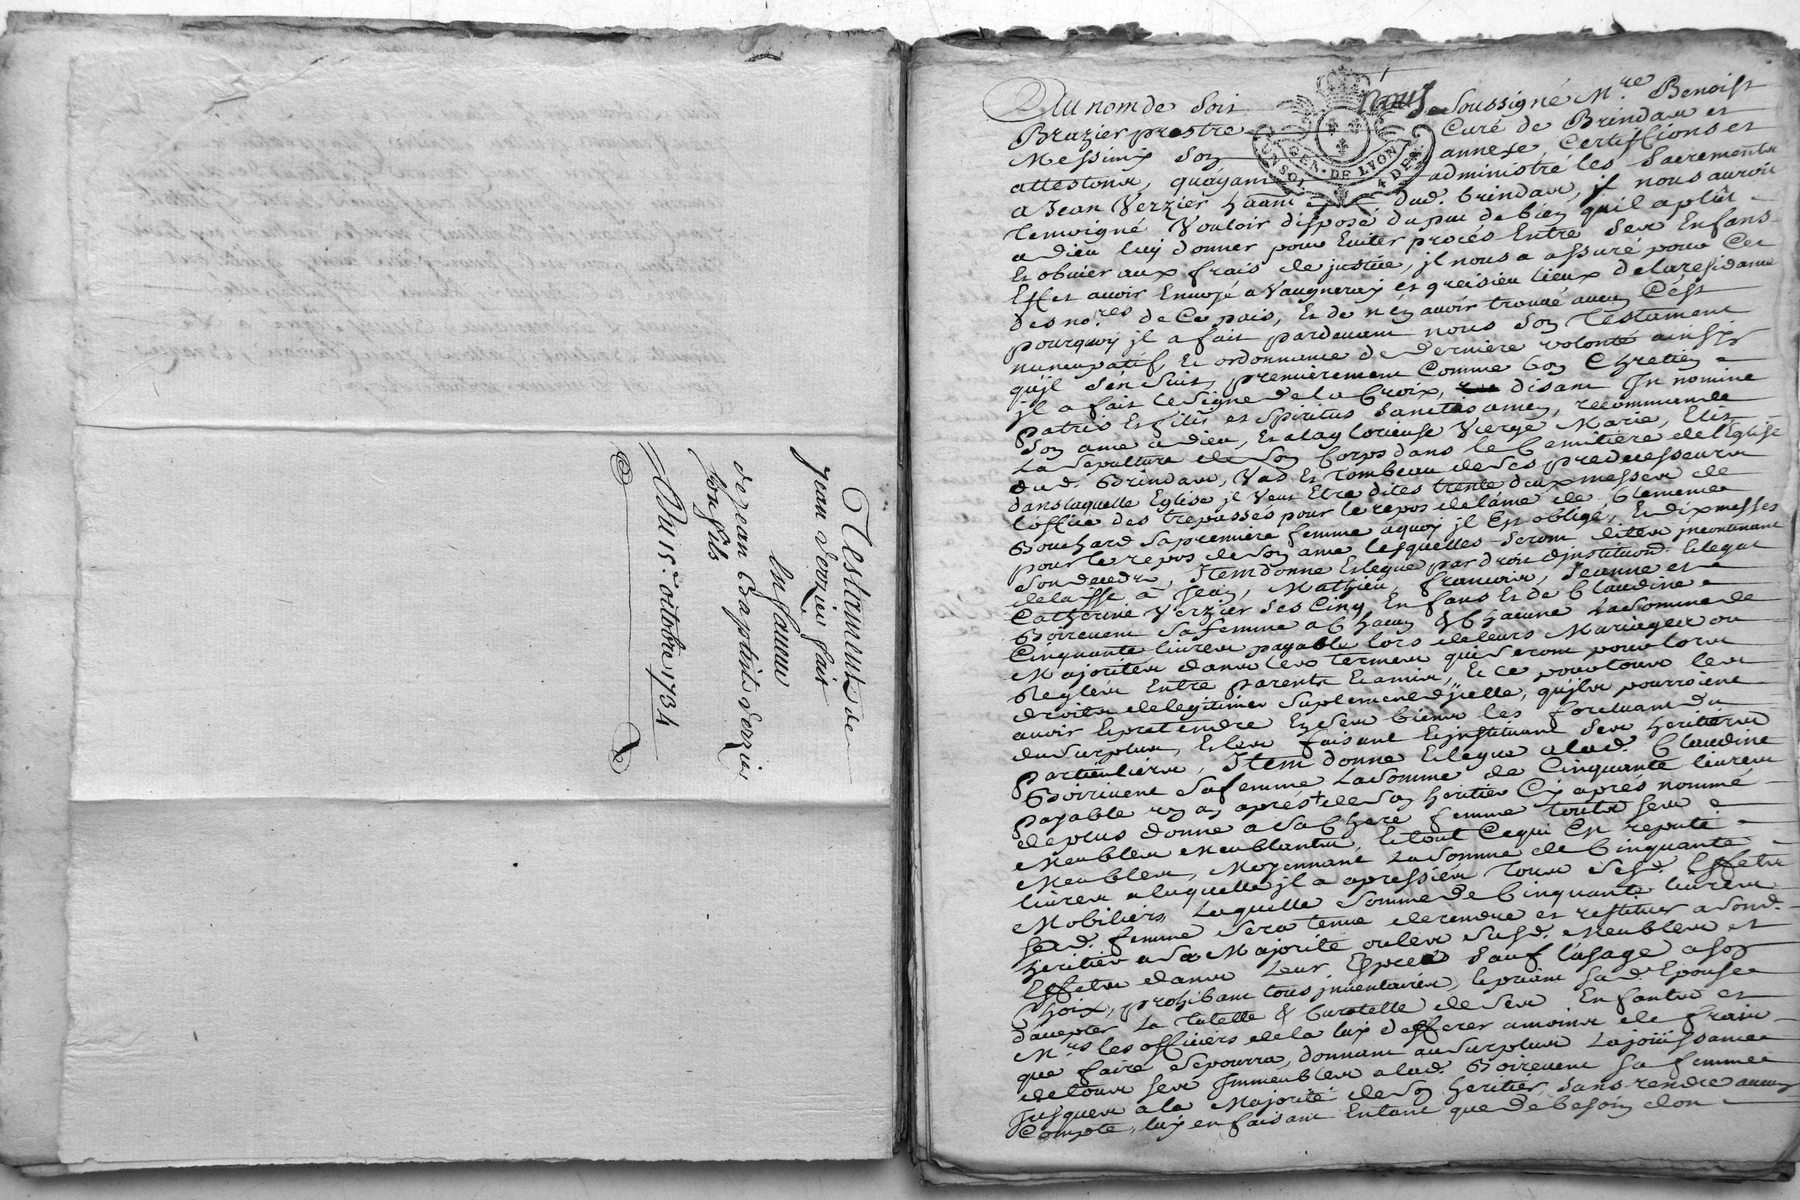 Testament de
Jean Verzier fait
En faveur
de jean Baptiste Verzier
son fils
Du 15.e octobre 1734
GEN. DE LYON
UN SOL 4 DEN.
Au nom de Soit nous Soussigné M.re Benoist
Brazier prestre Curé de Brindas et
Messimy Son annexe, Certiffions et
attestons, quayant administré les Sacrements
a Jean Verzier hant dud. brindas, jl nous auroit
temoigné Vouloir disposé du peu de bien qu'il a plût
a dieu luy donner pour Eviter procés Entre Ses Enfans
Et obvier aux frais de justice, jl nous a assuré pour Cet
Effet avoir Envoyé a Vaugneray et greisieu lieux de la residance
des no.res de Ce païs, Et de n'en avoir trouvé aucun C'ést
pourquoy jl a fait pardevant nous Son Testament
nuncupatif Et ordonnance de derniere volonté ainsy
qu'jl S'en Suit, premiérement Comme bon Chretien
jl a fait le Signe de la Croix, disant In nomine
patris Et filii et Spiritus Sancti amen, recommande
Son ame à dieu, Et a la glorieuse Vierge Marie, Elit
La Sepulture de Son Corps dans le Cemitière de l'Eglise
dud. Brindas, Vas Et Tombeau de Ses predecesseurs
dans laquelle Eglise jl Veut Etre dites trente deux messes de
l'office des trepassés pour le repos de l'ame de Clemence
Bouchard Sa premiere femme aquoy jl Est obligé, Et dix messes
pour le repos de Son ame lesquelles Seront dites jncontinant
Son decedz, Item donne Et legue par droit d'jnstitution Et legat
delaisse à Jean, Mathieu, francois, Jeanne et
Catherine Verzier Ses Cinq Enfans Et de Claudine
Boirivent Sa femme a Chacun & Chacune La Somme de
Cinquante livres payable lors de leurs Mariages ou
Majorités dans les termes qui Seront pour lors
Reglés Entre parents Et amis, Et ce pour tous les
droits de legitimes Suplement d'jcelle, qu'jls pourroient
avoir Et pretendre En Ses biens les forcluant du
du Surplus, Et les faisant Et jnstituant Ses heritiers
Particuliers, Item donne Et legue a lad. Claudine
Boirivent Sa femme La Somme de Cinquante livres
Payable un an aprés de Son heritier Cy aprés nommé
de plus donne a Sa Chere femme touts Ses
Meubles Meublants, Et tout Ce qui Est reputé
Meubles, Moyennant La Somme de Cinquante
livres a laquelle jl a apressié tous Sesd. Effets
Mobiliers, Laquelle Somme de Cinquante livres
Sad. femme Sera tenue de rendre et restituer a Sond.
heritier a Sa Majorité ou les Susd. Meubles et
Effets dans Leur Espece Sauf l'usage a Son
Choix, prohibant tous jnventaires, Et priant Sad. Epouse
d'accepter La Tutelle & Curatelle de Ses Enfants et
M.rs les officiers de la lux d'efferer a moins de frais
que faire Se pourra, donnant au Surplus La joüissance
de tous Ses Immeubles a lad. Boirivent Sa femme
Jusques a la Majorité de Son heritier, Sans rendre aucun
Compte, luy en faisant Entant que de besoin don